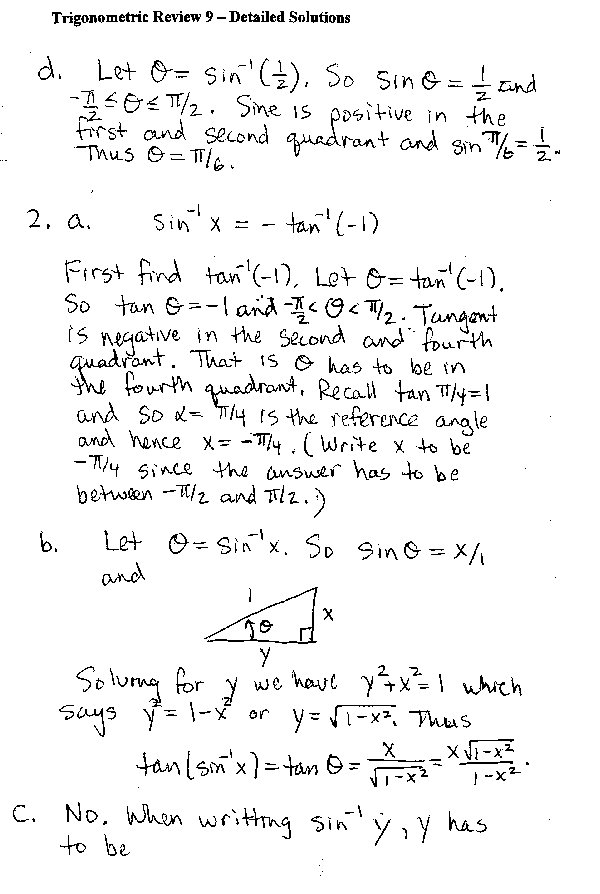 Trigonometric Review 9 – Detailed Solutions
d. Let θ = sin⁻¹(1/2). So sin θ = 1/2 and
-π/2 ≤ θ ≤ π/2. Sine is positive in the
first and second quadrant and sin π/6 = 1/2.
Thus θ = π/6.
2. a. sin⁻¹ x = - tan⁻¹(-1)
First find tan⁻¹(-1). Let θ = tan⁻¹(-1).
So tan θ = -1 and -π/2 < θ < π/2. Tangent
is negative in the second and fourth
quadrant. That is θ has to be in
the fourth quadrant. Recall tan π/4 = 1
and so α = π/4 is the reference angle
and hence x = -π/4. (Write x to be
-π/4 since the answer has to be
between -π/2 and π/2.)
b. Let θ = sin⁻¹ x. So sin θ = x/1
and
1
θ
x
y
Solving for y we have y² + x² = 1 which
says y² = 1 - x² or y = √(1-x²). Thus
tan(sin⁻¹ x) = tan θ = x/√(1-x²) = x√(1-x²)/(1-x²).
C. No. When writting sin⁻¹ y, y has
to be